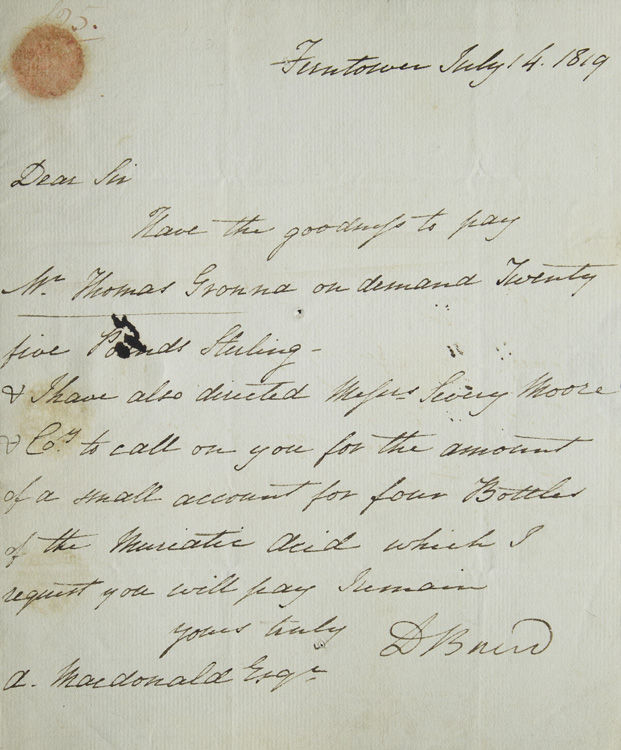 25.
Ferntower July 14. 1819
Dear Sir
Have the goodness to pay
Mr Thomas Gronna on demand Twenty
five Pounds Sterling -
& I have also directed Messrs Severy Moore
& Coy to call on you for the amount
of a small account for four Bottles
of the Muriatic Acid which I
request you will pay I remain
yours truly
D Baird
A. Macdonald Esqr